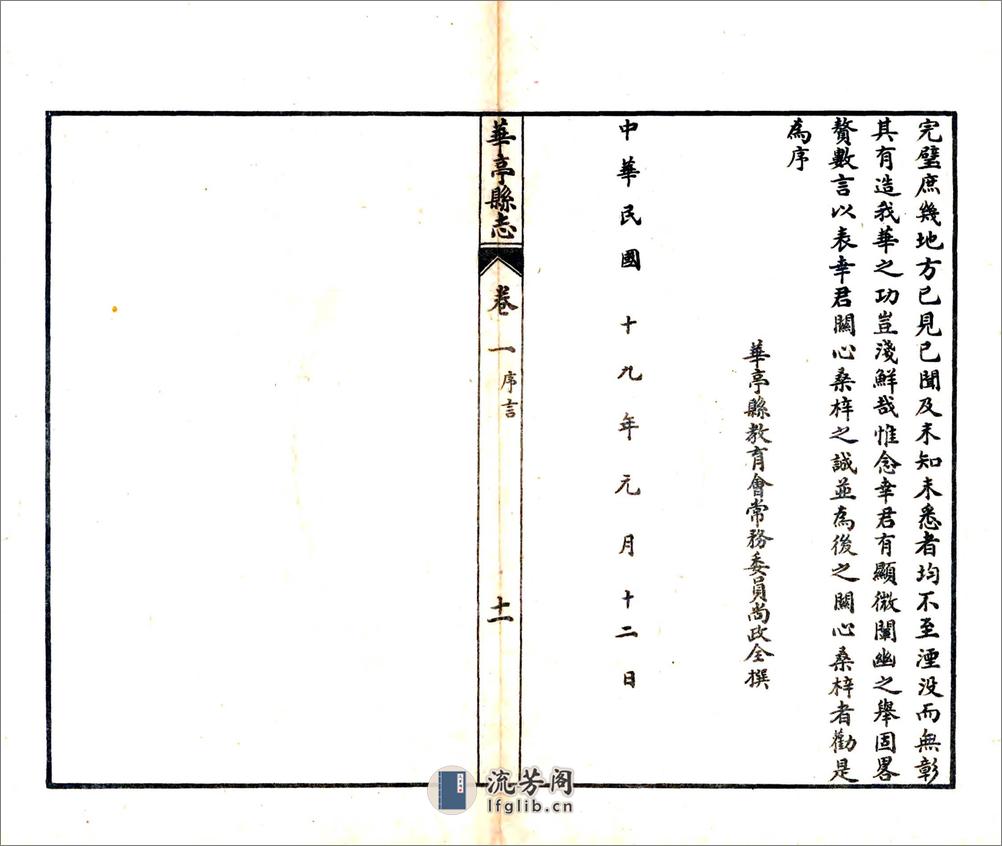 完璧庶幾地方已見已聞及未知未悉者均不至湮没而無彰
其有造我華之功豈淺鮮哉惟念幸君有顯微闡幽之舉固畧
贅數言以表幸君關心桑梓之誠並為後之關心桑梓者勸是
為序
華亭縣教育會常務委員尚政全撰
中華民國十九年元月十二日
華亭縣志
卷一
序言
十一
流芳阁
lfglib.cn